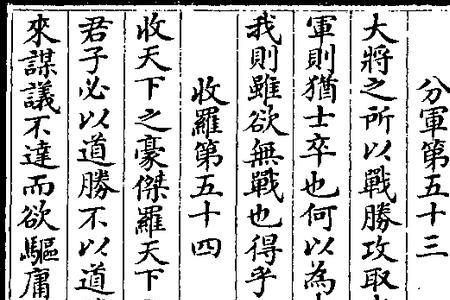 分軍第五十三
大將之所以戰勝攻取
軍則猶士卒也何以為
我則雖欲無戰也得乎
收羅第五十四
收天下之豪傑羅天下
君子必以道勝不以道
來謀議不達而欲驅庸